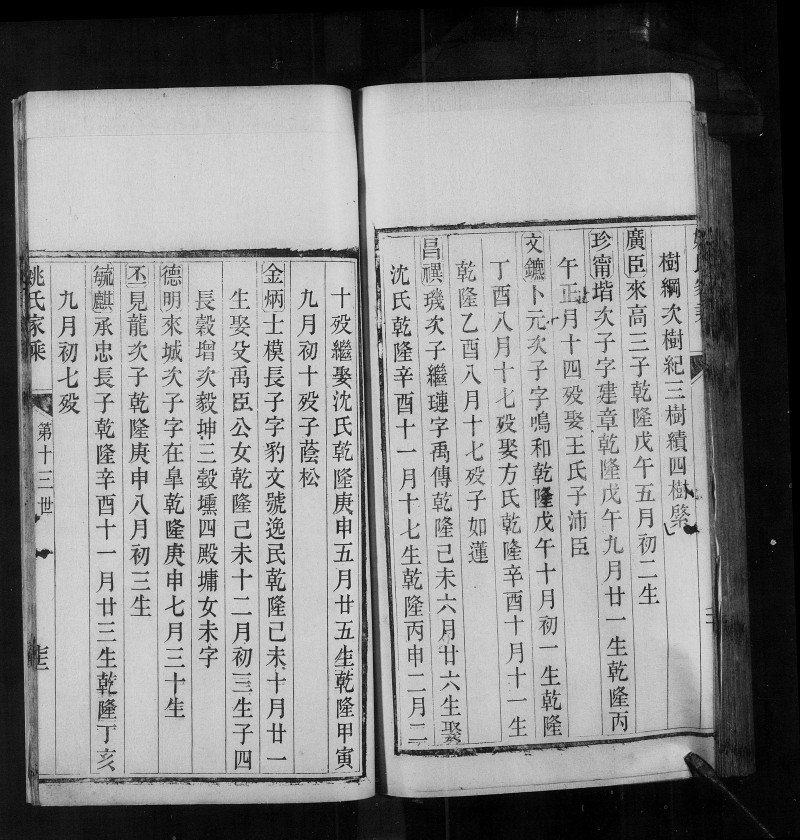 樹綱次樹紀三樹績四樹棨
廣臣來高三子乾隆戊午五月初二生
珍甯堦次子字建章乾隆戊午九月廿一生乾隆丙
午正月十四歿娶王氏子沛臣
文鑣卜元次子字鳴和乾隆戊午十月初一生乾隆
丁酉八月十七歿娶方氏乾隆辛酉十月十一生
乾隆乙酉八月十七歿子如蓮
昌禩璣次子繼璉字禹傳乾隆己未六月廿六生娶
沈氏乾隆辛酉十一月十七生乾隆丙申二月二
十歿繼娶沈氏乾隆庚申五月廿五生乾隆甲寅
九月初十歿子蔭松
金炳士模長子字豹文號逸民乾隆己未十月廿一
生娶殳禹臣公女乾隆己未十二月初三生子四
長穀增次毅坤三穀壎四殿墉女未字
德明來城次子字在阜乾隆庚申七月三十生
丕一見龍次子乾隆庚申八月初三生
毓麒承忠長子乾隆辛酉十一月廿三生乾隆丁亥
九月初七歿
姚氏家乘 第十三世